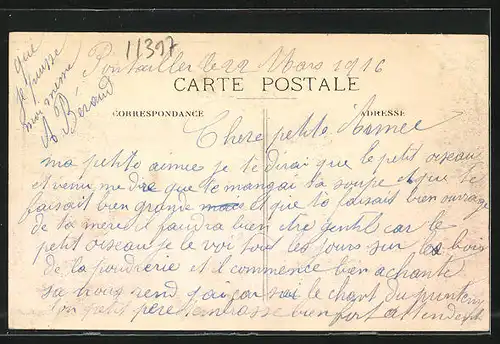 11397
Pontailler le 22 Mars 1916
CARTE POSTALE
CORRESPONDANCE
ADRESSE
Chere petite Aimee
ma petite aimee je te dirai que le petit oiseau
et venu me dire que te mangai ta soupe et que te
faisait bien grande mais et que tu faisait bien ouvrage
de ta mere il faudra bien etre gentil car le
petit oiseau je le voi tous les jours sur les bois
de la poudrerie et il commence bien a chante
sa nous rend gai car sai le chant du printemp
ton petit père tembrasse bien fort attendant
que
je puisse
moi meme
A Béraud